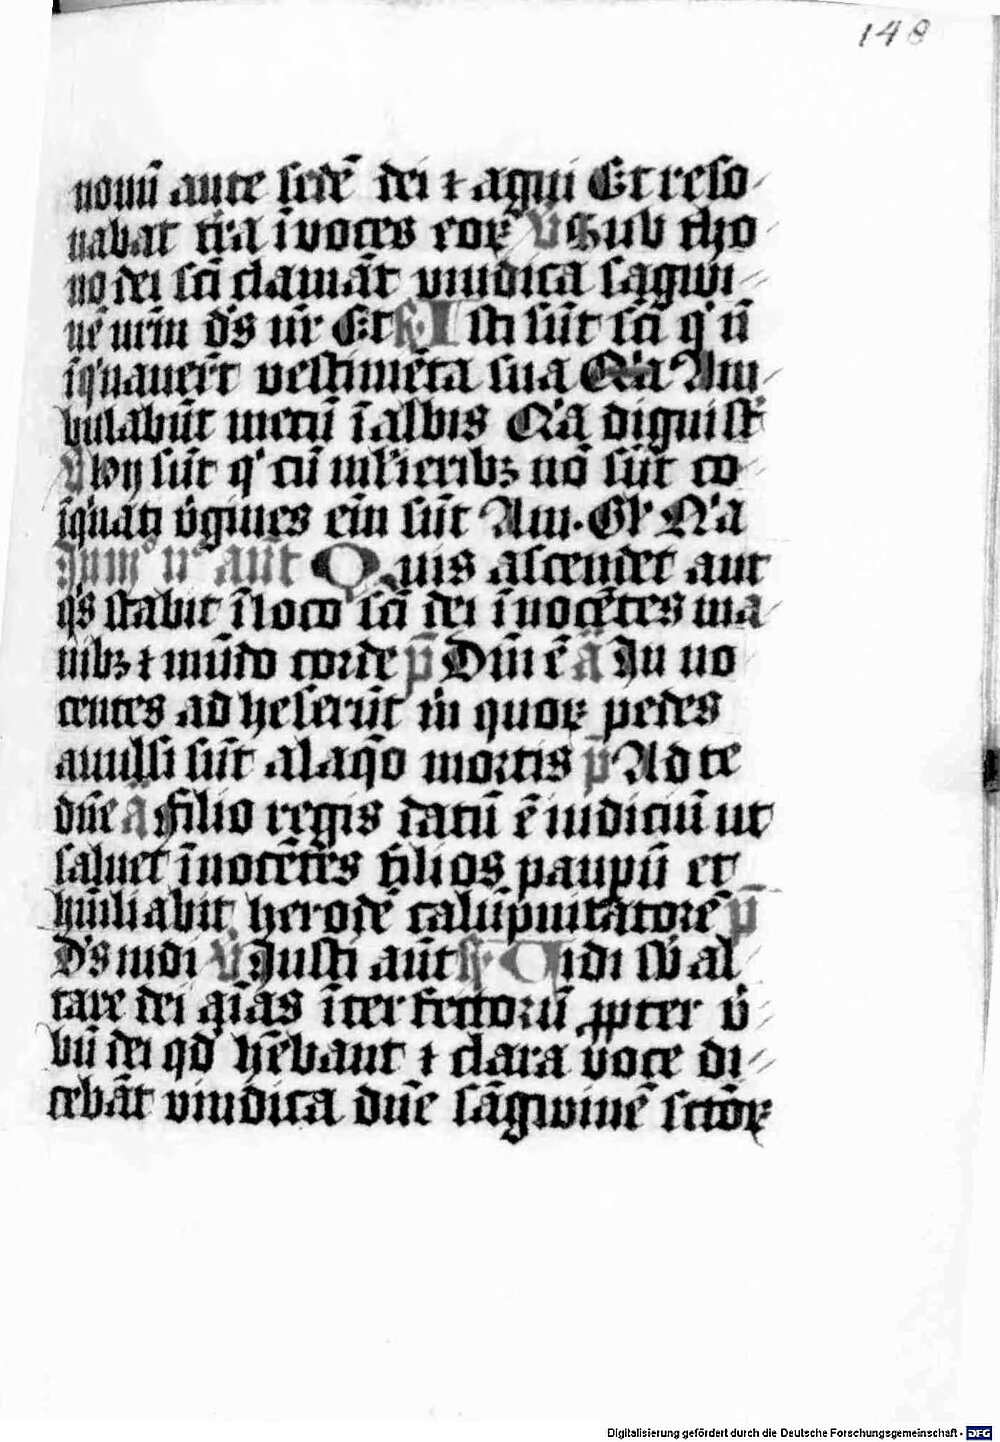 148
nouū ante sedē dei ⁊ agni Et reso
nabat t̄ra ī voces eoꝝ V Sub tho
no dei sc̄i clamāt vindica sāgwi
nē nr̄m ds̄ nr̄ Et R. Isti sūt sc̄i qͥ nō
īqͥnauer̄t vestimēta sua Qͥa Am
bulabūt mecū ī albis Qͥa digni st̄
V Hij sūt qͥ cū ml̓ieribꝫ nō sūt co
īqͥnati v̓gines em̄ sūt Am. Gl̓ Qͥa
Inmͦ nͦ an̄t Quis ascendet aut
qͥs stabit ī loco sc̄i dei īnocētes ma
nibꝫ ⁊ mūdo corde p̄ Dm̄ ē ā In no
centes ad heserūt m̓ quoꝝ pedes
auulsi sūt a laqͦ mortis p̄ Ad te
dn̄e ā filio regis datū ē iudiciū ut
saluet īnocētēs filios paupū et
hūiliabit herodē calūpnitatorē p̄
Ds̄ iudi V Iusti aūt R. Vidi sb̓ al
tare dei aīas īterfectorū ꝓpter v̓
bū dei qd̓ hēbant ⁊ clara voce di
cebāt vindica dn̄e sāgwinē sctōꝝ
Digitalisierung gefördert durch die Deutsche Forschungsgemeinschaft - DFG